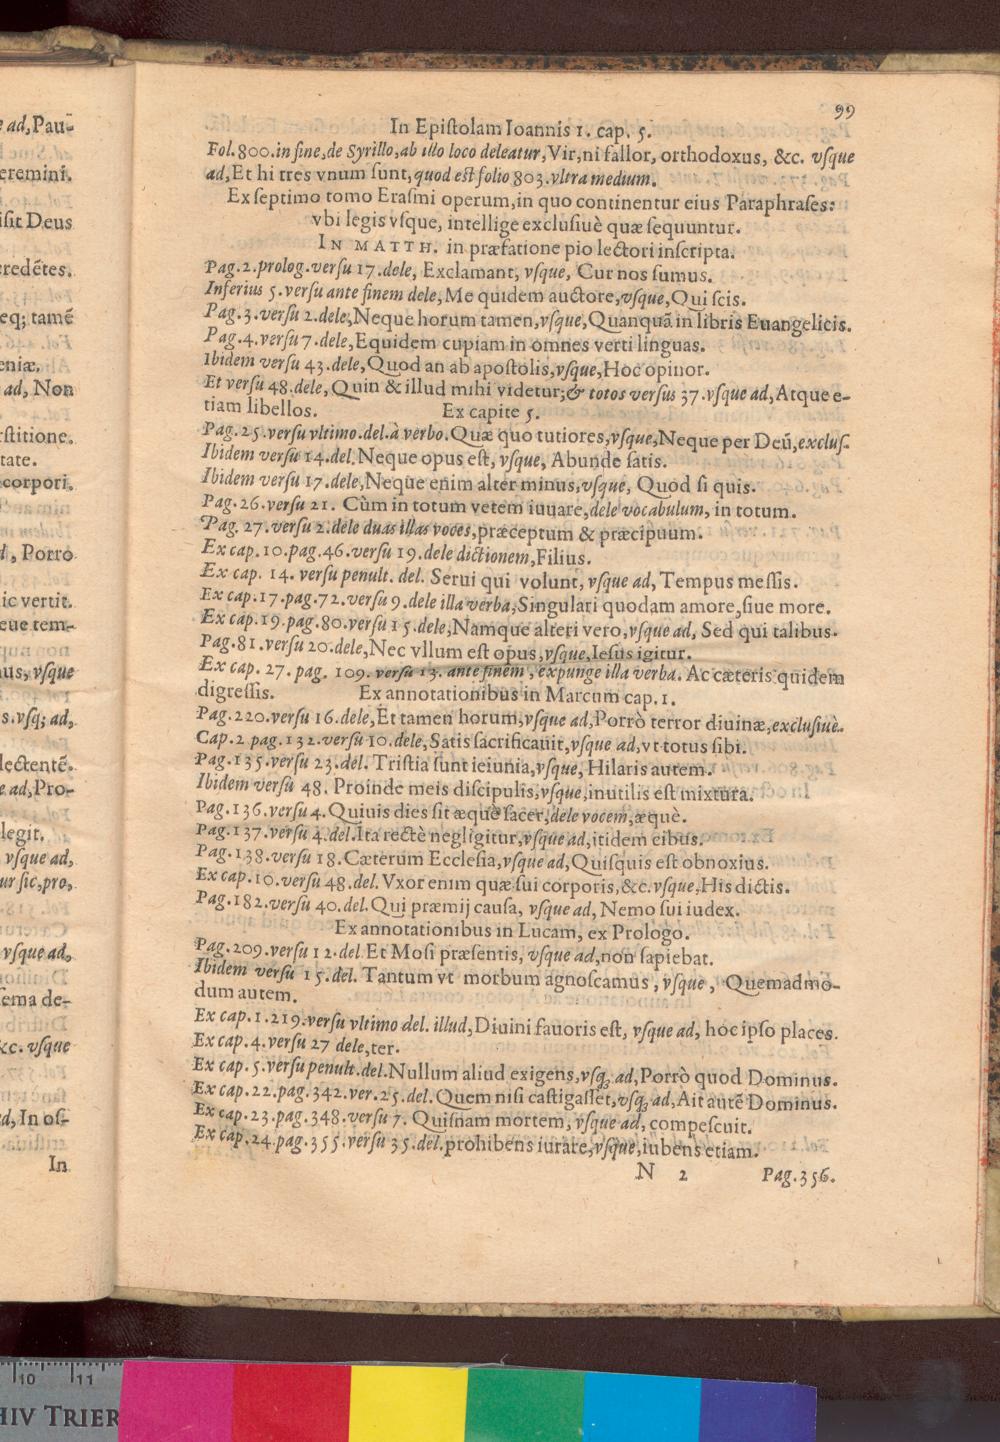 99
In Epiſtolam Ioannis 1. cap. 5.
Fol. 800. in fine, de Syrillo, ab illo loco deleatur, Vir, ni fallor, orthodoxus, &c. vſque
ad, Et hi tres vnum ſunt, quod eſt folio 803. vltra medium.
Ex ſeptimo tomo Eraſmi operum, in quo continentur eius Paraphraſes:
vbi legis vſque, intellige excluſiuè quæ ſequuntur.
IN MATTH. in præfatione pio lectori inſcripta.
Pag. 2. prolog. verſu 17. dele, Exclamant, vſque, Cur nos ſumus.
Inferius 5. verſu ante finem dele, Me quidem auctore, vſque, Qui ſcis.
Pag. 3. verſu 2. dele, Neque horum tamen, vſque, Quanquã in libris Euangelicis.
Pag. 4. verſu 7. dele, Equidem cupiam in omnes verti linguas.
Ibidem verſu 43. dele, Quod an ab apoſtolis, vſque, Hoc opinor.
Et verſu 48. dele, Quin & illud mihi videtur; & totos verſus 37. vſque ad, Atque e-
tiam libellos. Ex capite 5.
Pag. 25. verſu vltimo. del. à verbo. Quæ quo tutiores, vſque, Neque per Deũ, excluſ.
Ibidem verſu 14. del. Neque opus eſt, vſque, Abunde ſatis.
Ibidem verſu 17. dele, Neque enim alter minus, vſque, Quod ſi quis.
Pag. 26. verſu 21. Cùm in totum vetem iuuare, dele vocabulum, in totum.
Pag. 27. verſu 2. dele duas illas voces, præceptum & præcipuum.
Ex cap. 10. pag. 46. verſu 19. dele dictionem, Filius.
Ex cap. 14. verſu penult. del. Serui qui volunt, vſque ad, Tempus meſſis.
Ex cap. 17. pag. 72. verſu 9. dele illa verba, Singulari quodam amore, ſiue more.
Ex cap. 19. pag. 80. verſu 15. dele, Namque alteri vero, vſque ad, Sed qui talibus.
Pag. 81. verſu 20. dele, Nec vllum eſt opus, vſque, Ieſus igitur.
Ex cap. 27. pag. 109. verſu 13. ante finem, expunge illa verba. Ac cæteris quidem
digreſſis. Ex annotationibus in Marcum cap. 1.
Pag. 220. verſu 16. dele, Et tamen horum, vſque ad, Porrò terror diuinæ, excluſiuè.
Cap. 2 pag. 132. verſu 10. dele, Satis ſacrificauit, vſque ad, vt totus ſibi.
Pag. 135. verſu 23. del. Triſtia ſunt ieiunia, vſque, Hilaris autem.
Ibidem verſu 48. Proinde meis diſcipulis, vſque, inutilis eſt mixtura.
Pag. 136. verſu 4. Quiuis dies ſit æquè ſacer, dele vocem, æquè.
Pag. 137. verſu 4. del. Ita rectè negligitur, vſque ad, itidem cibus.
Pag. 138. verſu 18. Cæterum Eccleſia, vſque ad, Quiſquis eſt obnoxius.
Ex cap. 10. verſu 48. del. Vxor enim quæ ſui corporis, &c. vſque, His dictis.
Pag. 182. verſu 40. del. Qui præmij cauſa, vſque ad, Nemo ſui iudex.
Ex annotationibus in Lucam, ex Prologo.
Pag. 209. verſu 12. del. Et Moſi præſentis, vſque ad, non ſapiebat.
Ibidem verſu 15. del. Tantum vt morbum agnoſcamus, vſque, Quemadmo-
dum autem.
Ex cap. 1. 219. verſu vltimo del. illud, Diuini fauoris eſt, vſque ad, hoc ipſo places.
Ex cap. 4. verſu 27 dele, ter.
Ex cap. 5. verſu penult. del. Nullum aliud exigens, vſq; ad, Porrò quod Dominus.
Ex cap. 22. pag. 342. ver. 25. del. Quem niſi caſtigaſſet, vſq; ad, Ait autẽ Dominus.
Ex cap. 23. pag. 348. verſu 7. Quiſnam mortem, vſque ad, compeſcuit.
Ex cap. 24. pag. 355. verſu 35. del. prohibens iurare, vſque, iubens etiam.
N 2 Pag. 356.
ad, Pau-
eremini.
ſit Deus
credẽtes.
eq; tamẽ
eniæ.
ad, Non
rſtitione.
tate.
corpori.
, Porrò
ic vertit.
eue tem-
us, vſque
s. vſq; ad,
lectentẽ.
e ad, Pro-
legit.
vſque ad,
ur ſic, pro,
vſque ad,
ſema de-
&c. vſque
d, In oſ-
In
10 11
HIV TRIER